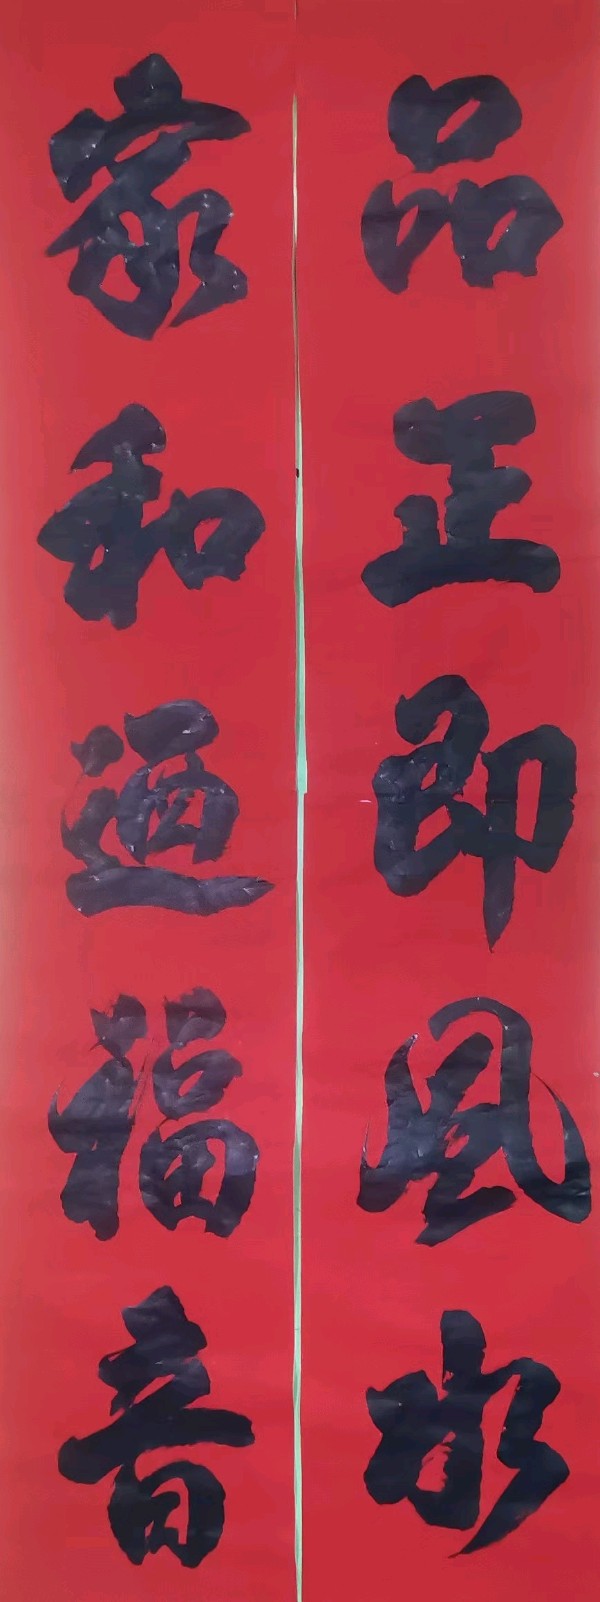 品正即風水
家和迺福音